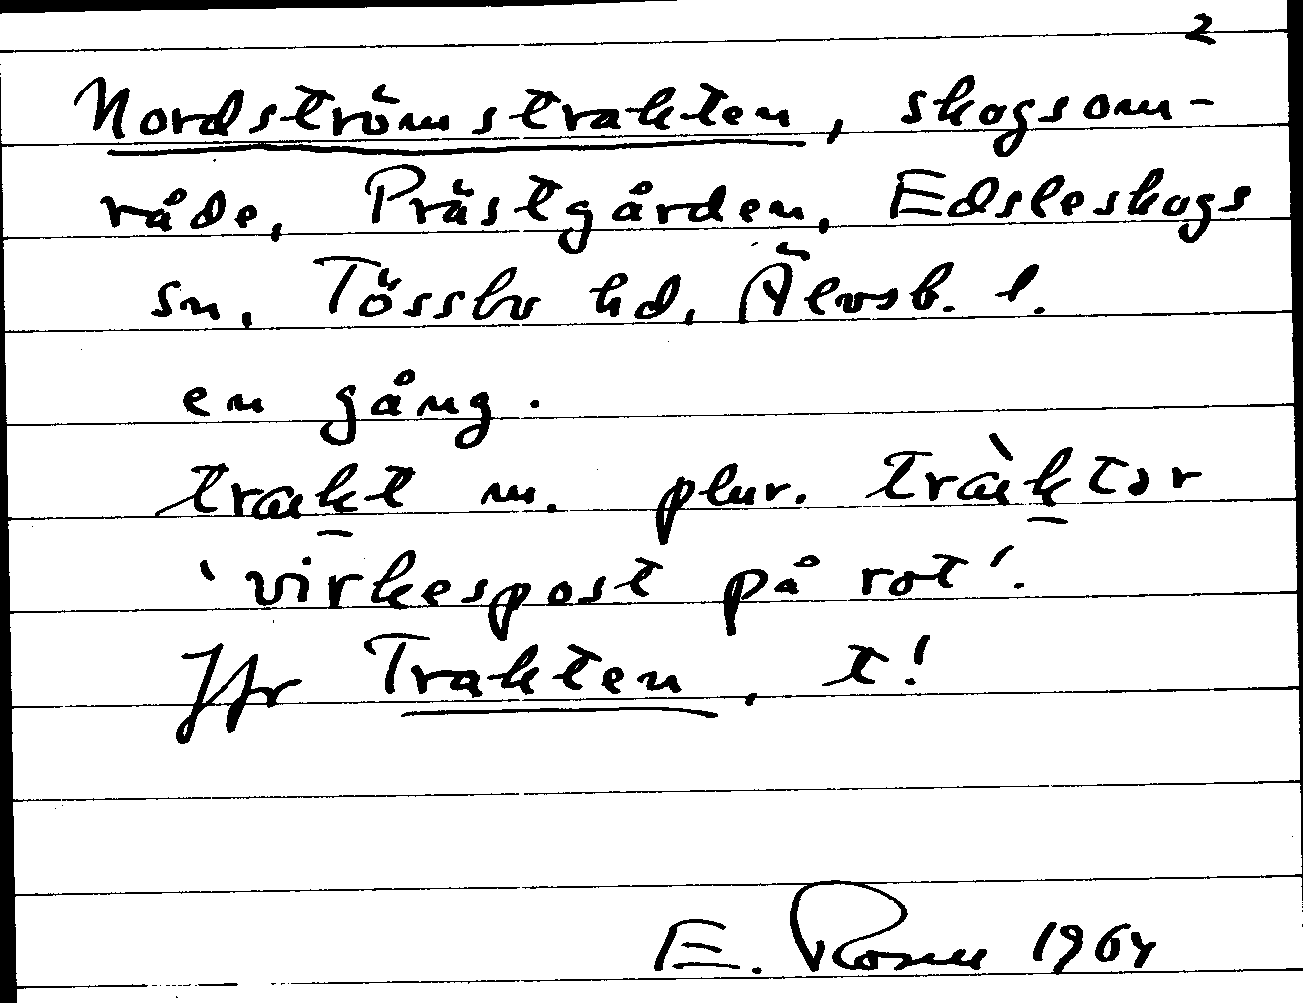 2
Nordströmstrakten, skogsom-
råde, Prästgården, Edsleskogs
sn, Tössbo hd, Älvsb. l.
en gång.
trakt m. plur. tràktər
'virkespost på rot'.
Jfr Trakten, t!
E. Rosen 1964